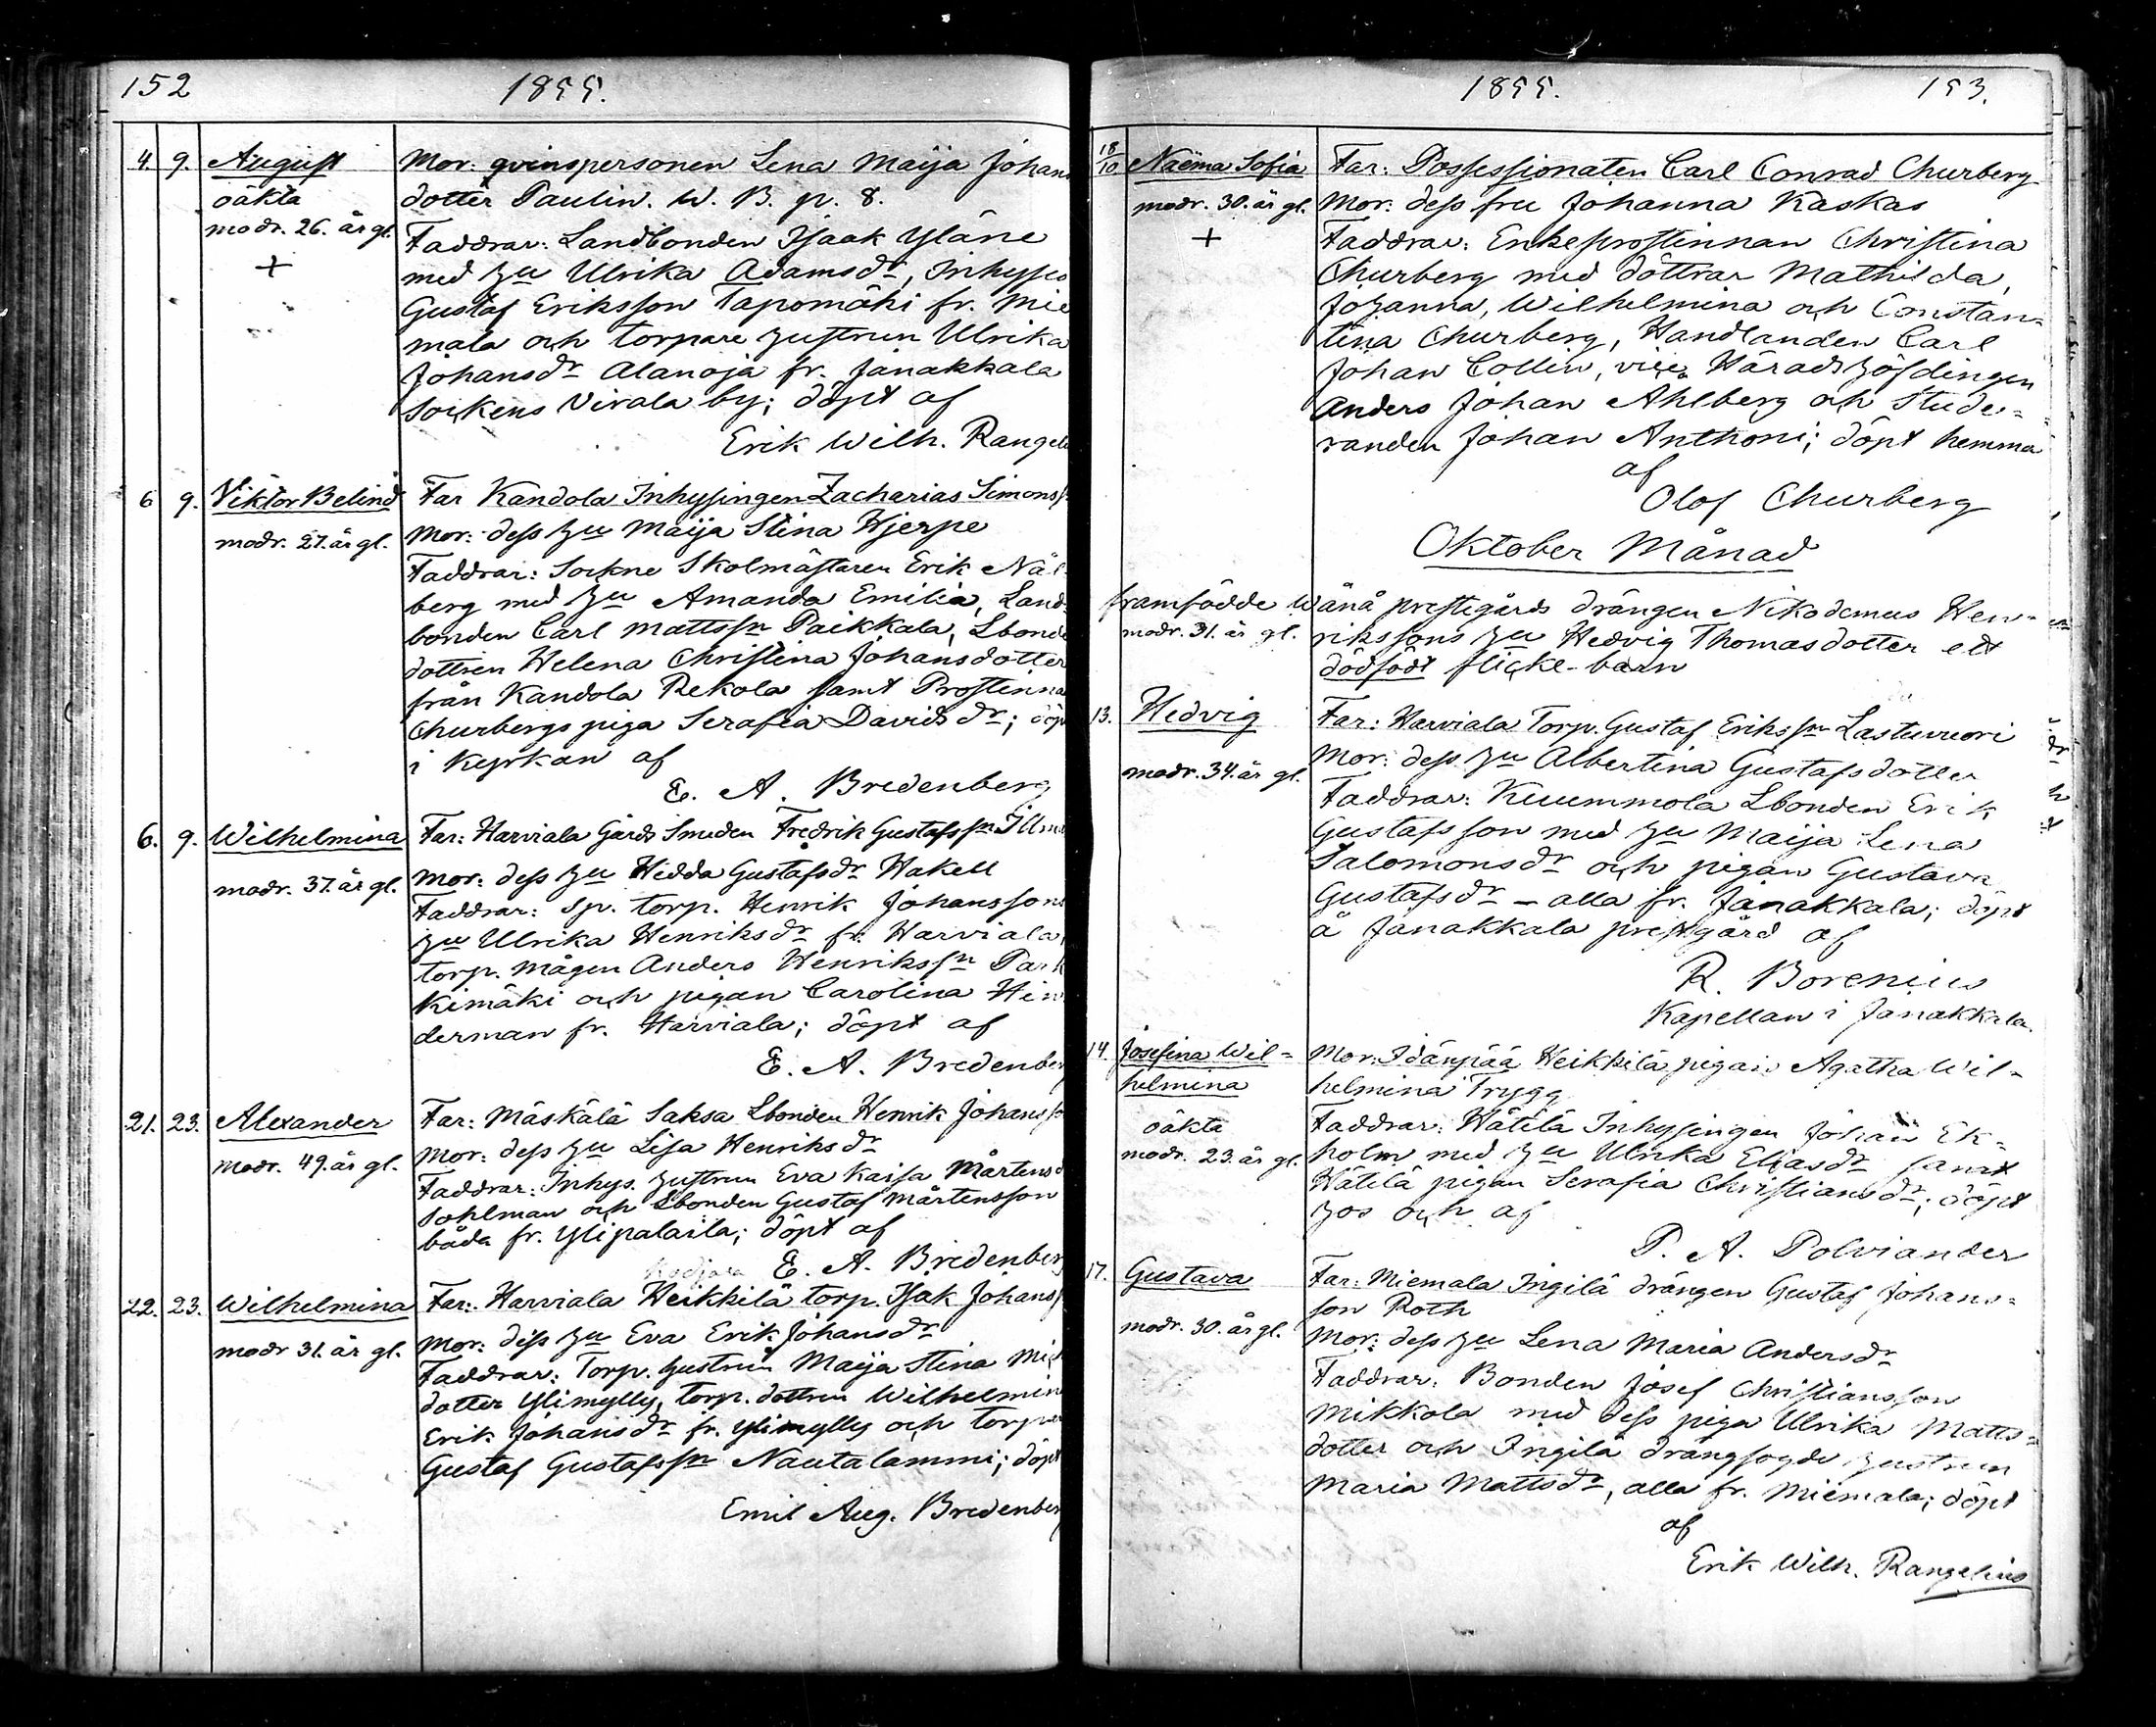 152
1855.
4. 9. August Mor: qvinspersonen Lena Maija Johans
oäkta dotter Paulin. W. B. p. 8.
modr. 26. år gl. Faddrar: Landbonden Isaak Yläne
+ med hu Ulrika Adamsdr, Inhyses
Gustaf Eriksson Tapomäki fr. Mie
mala och torpare hustrun Ulrika
Johansdr Alanoja fr. Janakkala
Sockens Virala by; döpt af
Erik Wilh. Rangel
6 9. Viktor Belind Far Kandola Inhysingen Zacharias Simonss
modr. 27. år gl. Mor: dess hu Maija Stina Hjerpe
Faddrar: Sockne Skolmästaren Erik Näl
berg med hu Amanda Emilia, Land-
bonden Carl Mattssn Paikkala, Lbonde
dottren Helena Christina Johansdotter
från Kandola Rekola samt Prostinna
Churbergs piga Serafia Davidsdr; döp
i Kyrkan af
E. A. Bredenberg
6. 9. Wilhelmina Far: Harviala Gårds Smeden Fredrik Gustafssn
modr. 37. år gl. Mor: dess hu Hedda Gustafsdr Hakell
Faddrar: Sp. torp. Henrik Johanssons
hu Ulrika Henriksdr fr. Harviala,
torp. mågen Anders Henrikssn Park
kimäki och pigan Carolina Hin
derman fr. Harviala; döpt af
E. A. Bredenber
21. 23. Alexander Far: Mäskälä Saksa Lbonden Henrik Johansso
modr. 49. år gl. Mor: dess hu Lisa Henriksdr
Faddrar: Inhys. hustrun Eva Kaisa Mårtensd
Sohlman och Lbonden Gustaf Mårtensson
båda fr. Ylipalaila; döpt af
E. A. Bredenberg
22. 23. Wilhelmina Far: Harviala Heikkilä torp. Isak Johanss
modr 31. år gl. Mor: dess hu Eva Erik Johansdr
Faddrar: Torp. hustrun Maija Stina Mic
dotter Ylimylly, torp. dottren Wilhelmin
Erik Johansdr fr. Ylimylly och torpar
Gustaf Gustafssn Nautalammi; döpt
Emil Aug. Bredenber
1855.
153.
18/10 Naëma Sofia Far: Possessionaten Carl Conrad Churberg
modr. 30. år gl. Mor: dess fru Johanna Kaskas
+ Faddrar: Enkeprostinnan Christina
Churberg med döttrar Mathilda,
Johanna, Wilhelmina och Constan-
tina Churberg, Handlanden Carl
Johan Collin, vice Häradshöfdingen
Anders Johan Ahlberg och Stude-
randen Johan Anthoni; döpt hemma
af
Olof Churberg
Oktober Månad
framfödde Wånå prestegårds drängen Nikodemus Hen-
modr. 31. år gl. rikssons hu Hedvig Thomasdotter ett
dödfödt flicke-barn
13. Hedvig Far: Harviala Torp. Gustaf Erikssn Lastuvuori
modr. 34. år gl. Mor: dess hu Albertina Gustafsdotter
Faddrar: Kuummola Lbonden Erik
Gustafsson med hu Maija Lena
Salomonsdr och pigan Gustava
Gustafsdr – alla fr. Janakkala; döpt
å Janakkala prestgård af
R. Borenius
Kapellan i Janakkala.
14. Josefina Wil- Mor: Idänpää Heikkilä pigan Agatha Wil-
helmina helmina Trygg
oäkta Faddrar: Hätilä Inhysingen Johan Ek-
modr. 23. år gl. holm med hu Ulrika Eliasdr samt
Hätilä pigan Serafia Christiansdr; döpt
hos och af
P. A. Polviander
17. Gustava Far: Miemala Ingilä drängen Gustaf Johans-
son Roth
modr. 30. år gl. Mor: dess hu Lena Maria Andersdr
Faddrar: Bonden Josef Christiansson
Mikkola med dess piga Ulrika Matts-
dotter och Ingilä drängfogde hustrun
Maria Mattsdr, alla fr. Miemala; döpt
af
Erik Wilh. Rangelius